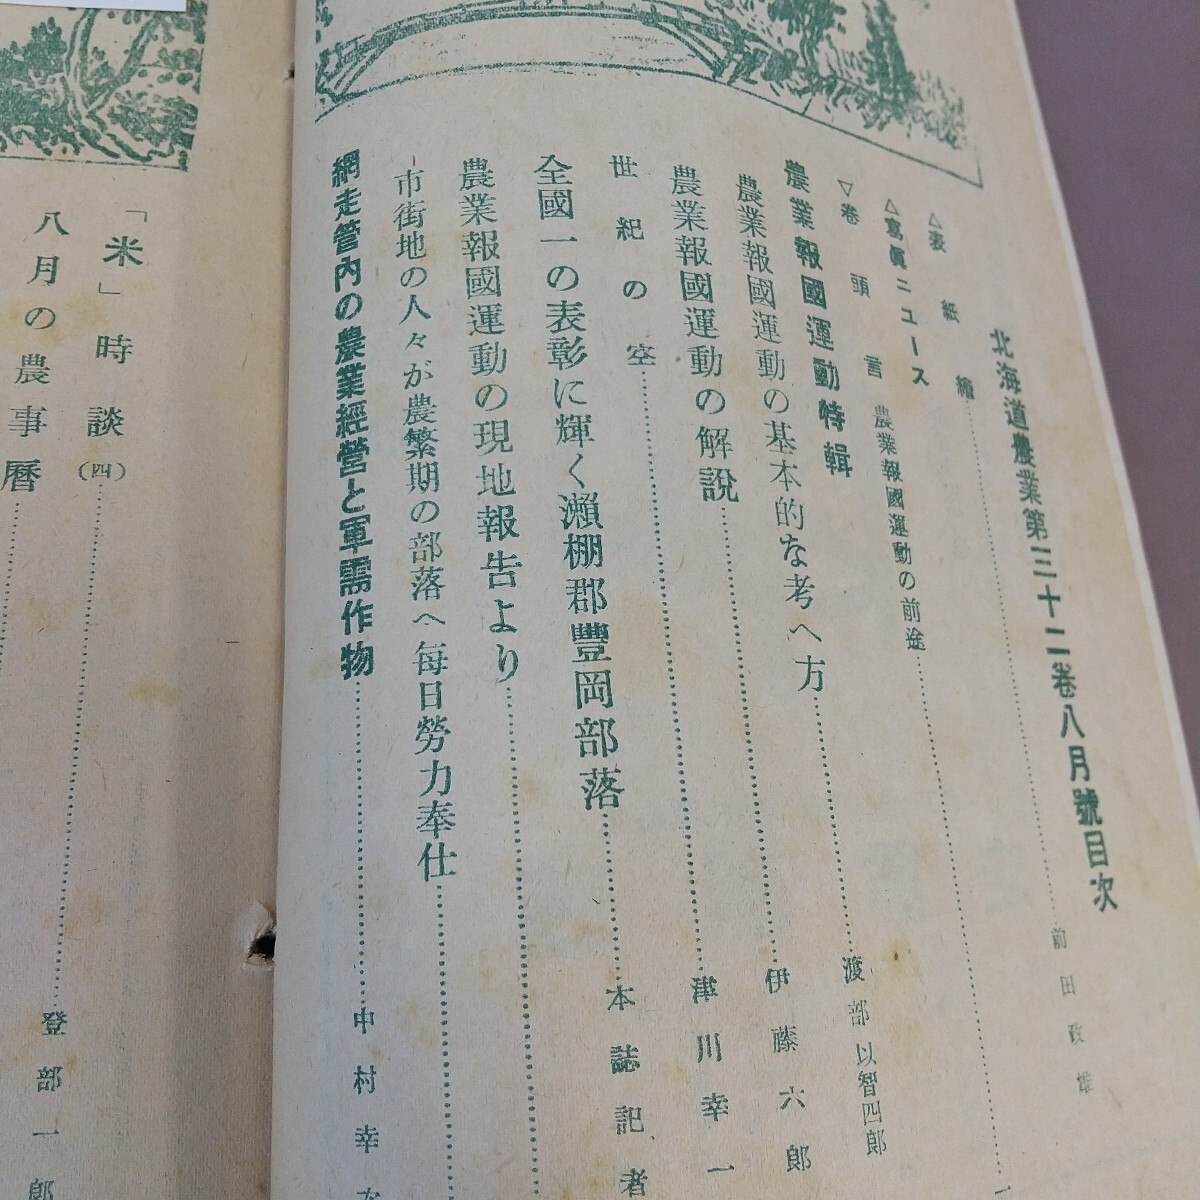 北海道農業第三十二卷八月號目次
△表紙繪 前田政雄
△寫眞ニュース
▽卷頭言 農業報國運動の前途
農業報國運動特輯
農業報國運動の基本的な考へ方 渡部以智四郎
農業報國運動の解説 伊藤六郎
世紀の空 津川幸一
全國一の表彰に輝く瀨棚郡豐岡部落 本誌記者
農業報國運動の現地報告より
市街地の人々が農繁期の部落へ毎日勞力奉仕
網走管内の農業經營と軍需作物 中村幸
「米」時談(四)
八月の農事曆 登部一郎